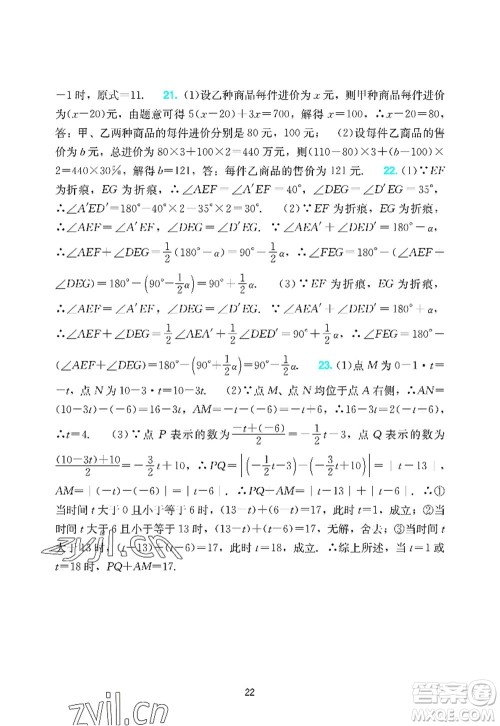 -1时,原式=11.  21. (1)设乙种商品每件进价为x元,则甲种商品每件进价为
(x-20)元,由题意可得50(x-20)+30x=700,解得x=100,x-20=80,
答:甲、乙两种商品的每件进价分别是80元,100元;  (2)设每件乙商品的售
价为b元,总进价为80×3+100×2=440万元,则(110-80)×3+(b-100)×
2=440×30%,解得b=121,答:每件乙商品的售价为121元.  22. (1)∵EF
为折痕,EG为折痕,∴∠AEF=∠A′EF=40°,∠DEG=∠D′EG=35°,
∴∠A′ED′=180°-40°×2-35°×2=30°.  (2)∵EF为折痕,EG为折痕,
∴∠AEF=∠A′EF,∠DEG=∠D′EG.∵∠AEA′+∠DED′=180°-α,
∴∠AEF+∠DEG=1/2(180°-α)=90°-1/2α,∴∠FEG=180°-(∠AEF+
∠DEG)=180°-(90°-1/2α)=90°+1/2α.  (3)∵EF为折痕,EG为折痕,
∴∠AEF=∠A′EF,∠DEG=∠D′EG.∵∠AEA′+∠DED′=180°+α,
∴∠AEF+∠DEG=1/2(180°+α)=90°+1/2α,∴∠FEG=180°-
(∠AEF+∠DEG)=180°-(90°+1/2α)=90°-1/2α.  23. (1)点M为0-1·t=
-t,点N为10-3·t=10-3t.  (2)∵点M、点N均位于点A右侧,∴AN=
(10-3t)-(-6)=16-3t,AM=(-t)-(-6)=6-t,
∴t=4.  (3)∵点P表示的数为(-t+(-6))/2=-1/2t-3,点Q表示的数为
((10-3t)+10)/2=-3/2t+10,∴PQ=|(-3/2t+10)-(-1/2t-3)|=|-t+13|,
AM=|(-t)-(-6)|=|-t+6|,∴|-t+13|+|-t+6|=17.①
当时间t大于0且小于等于6时,(-t+13)+(-t+6)=17,t=1,成立;②当
时间t大于6且小于等于13时,(-t+13)-(-t+6)=17,无解,舍去;③当时间t
大于13时,-(-t+13)-(-t+6)=17,t=18,成立.∴综上所述,当t=1或
t=18时,PQ+AM=17.
22
zyjl.cn
zyjl.cn
答案圈
MXQE.COM